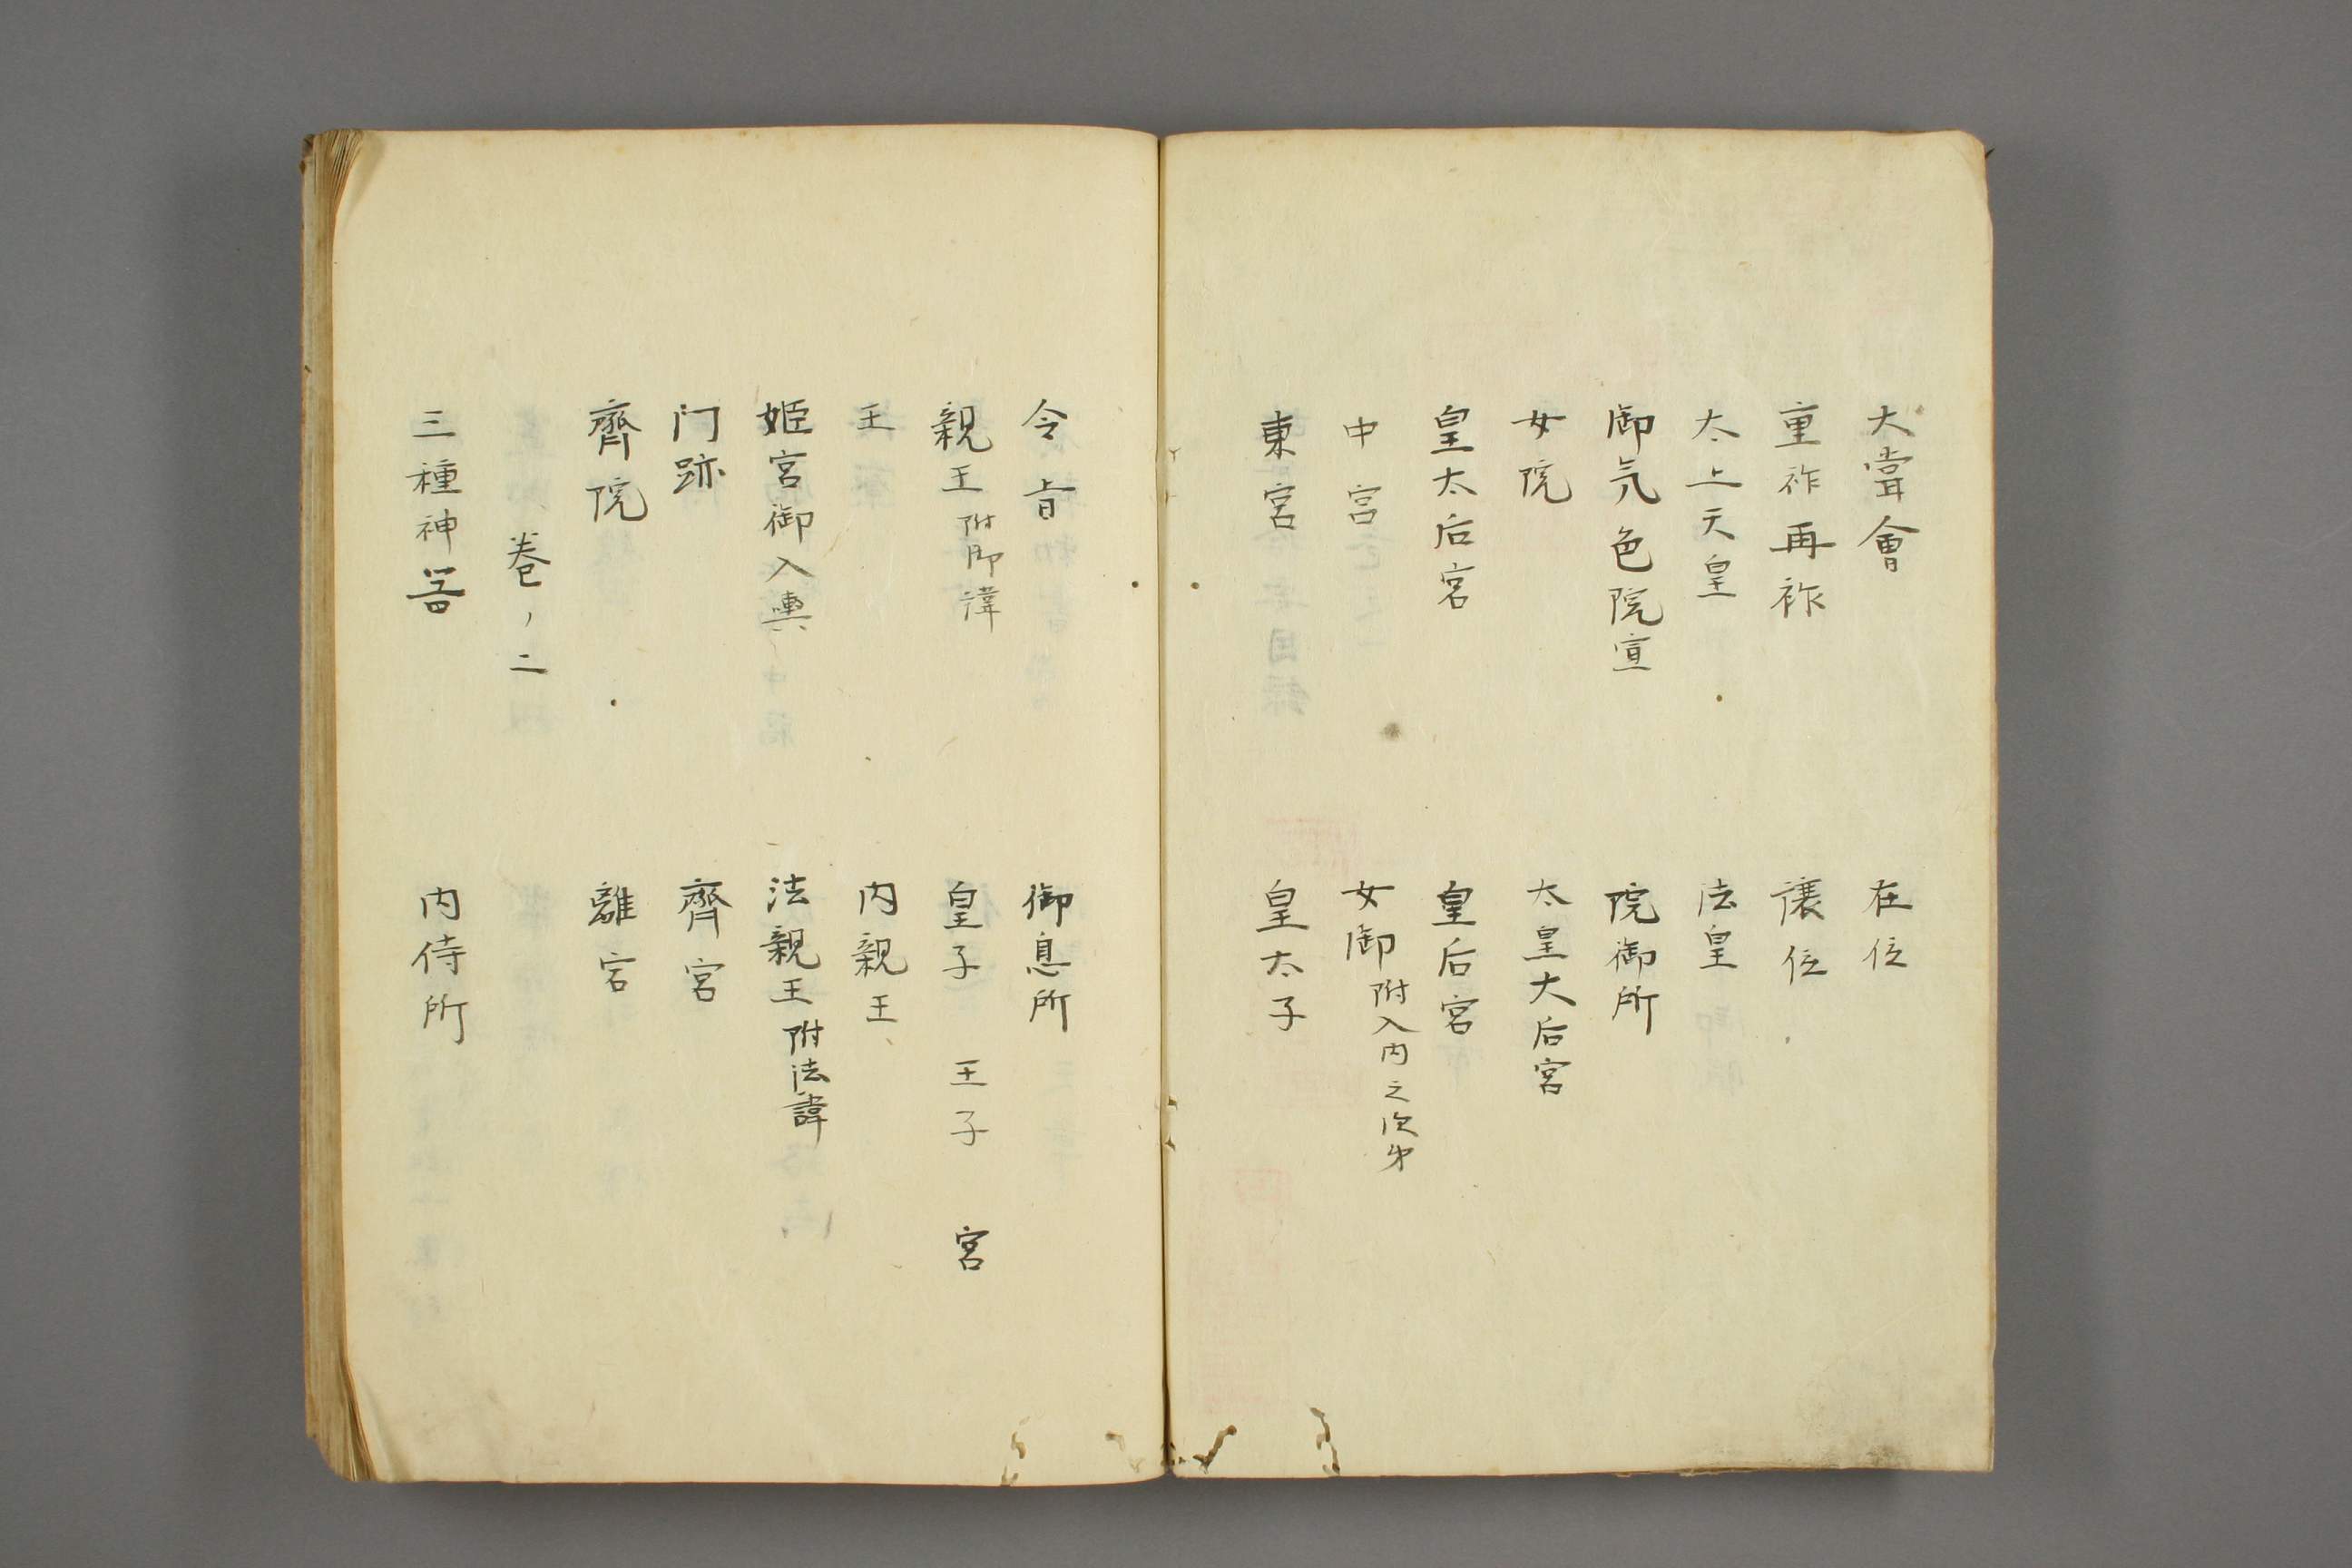 大甞會　在位
重祚再祚　譲位
太上天皇　法皇
御気色院宣　院御所
女院　太皇大后宮
皇太后宮　皇后宮
中宮　女御附入内之次第
東宮　皇太子
令旨　御息所
親王附御諱　皇子　王子　宮
王　内親王
姫宮御入輿　法親王附法諱
门跡　齊宮
齊院　離宮
巻ノ二
三種神器　内侍所